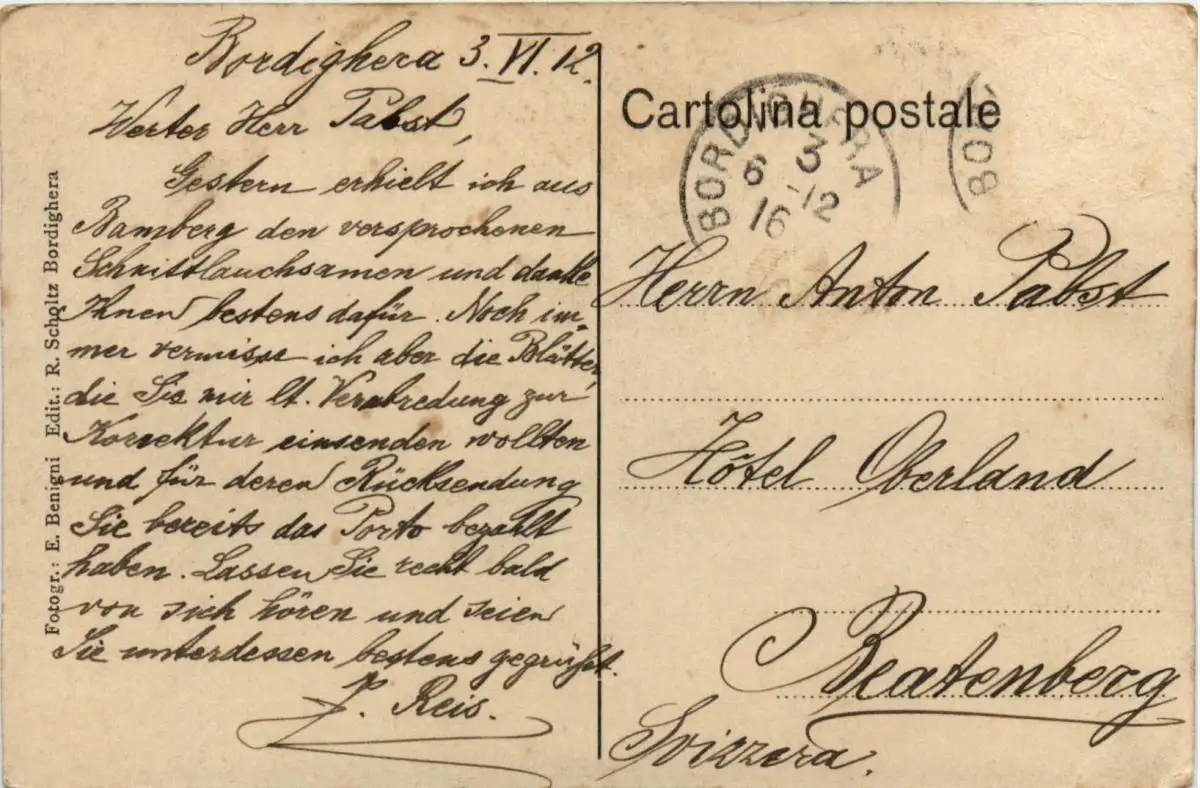 Bordighera 3. VI. 12.
Werter Herr Pabst,
Gestern erhielt ich aus
Bamberg den versprochenen
Schnittlauchsamen und danke
Ihnen bestens dafür. Noch im-
mer vermisse ich aber die Blätter,
die Sie mir lt. Verabredung zur
Korrektur einsenden wollten
und für deren Rücksendung
Sie bereits das Porto bezahlt
haben. Lassen Sie recht bald
von sich hören und seien
Sie unterdessen bestens gegrüßt.
Reis.
Fotogr.: E. Benigni Edit.: R. Scholtz Bordighera
Cartolina postale
BORDIGHERA
3
6 -12
16
Herrn Anton Pabst
Hôtel Oberland
Beatenberg
Svizzera.